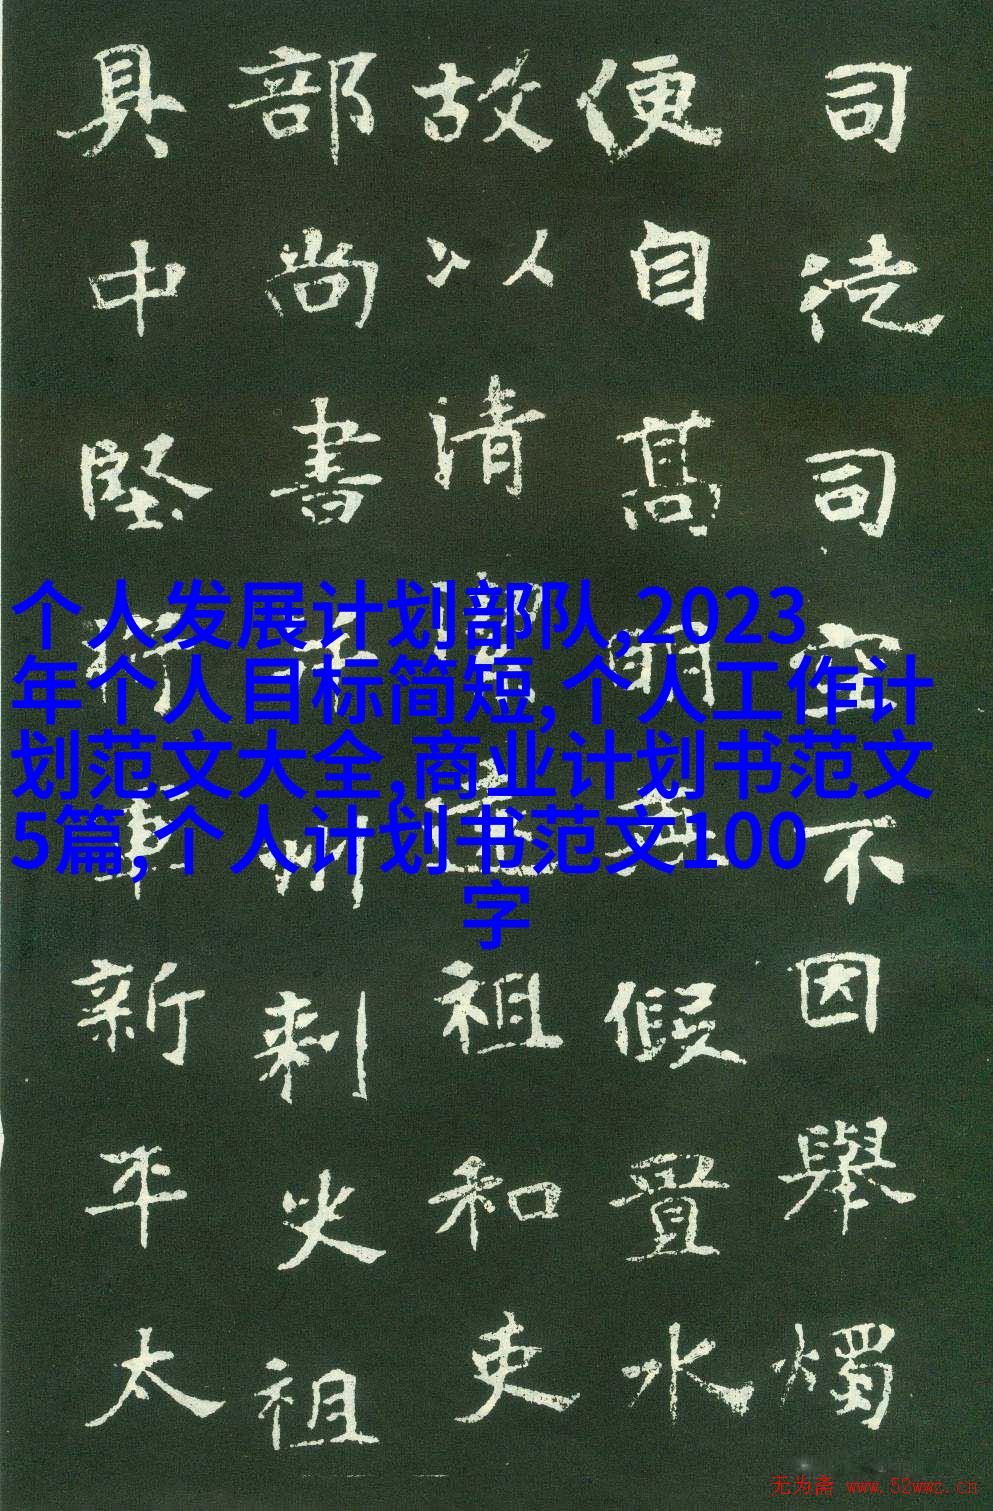 个人发展计划部队,2023
年个人目标简短,个人工作计
划范文大全,商业计划书范文
5篇,个人计划书范文100
字
司徒司空不因舉燭
便自髙明假置水
故以清祖和吏
部尚書州刺史祖
具中堅軍新平太
无为斋 www.52wwz.cn